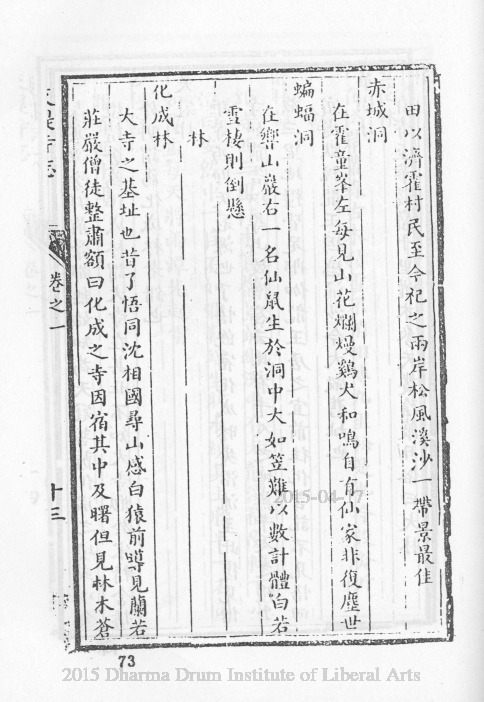 田以濟霍村民至今祀之兩岸松風溪沙一帶景最佳
赤城洞
在霍童峯左每見山花爛熳鷄犬和鳴自有仙家非復塵世
蝙蝠洞
在嚮山巖右一名仙鼠生於洞中大如笠難以數計體白若
雪棲則倒懸
林
化成林
大寺之基址也昔了悟同沈相國尋山感白猿前導見蘭若
莊嚴僧徒整肅額曰化成之寺因宿其中及曙但見林木蒼
寺志
卷之一
十三
73
2015-04-17
2015 Dharma Drum Institute of Liberal Arts